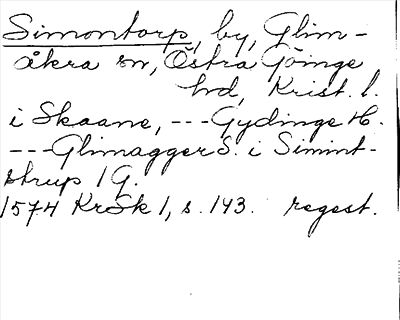 Simontorp, by, Glim-
åkra sn, Östra Göinge
hd, Krist. l.
i Skaane, --- Gydinge H.
--- Glimagger S. i Simint-
strup 1 G.
1574 KrSk 1, s. 143. regest.